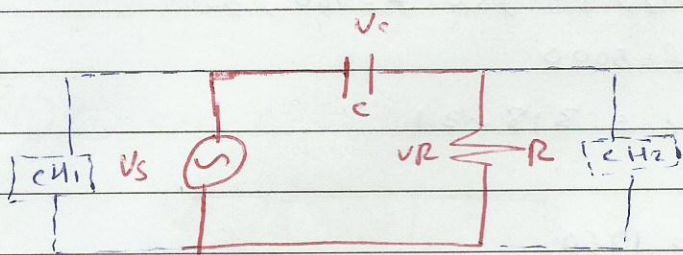 Vc
C
CH1 VS VR R CH2